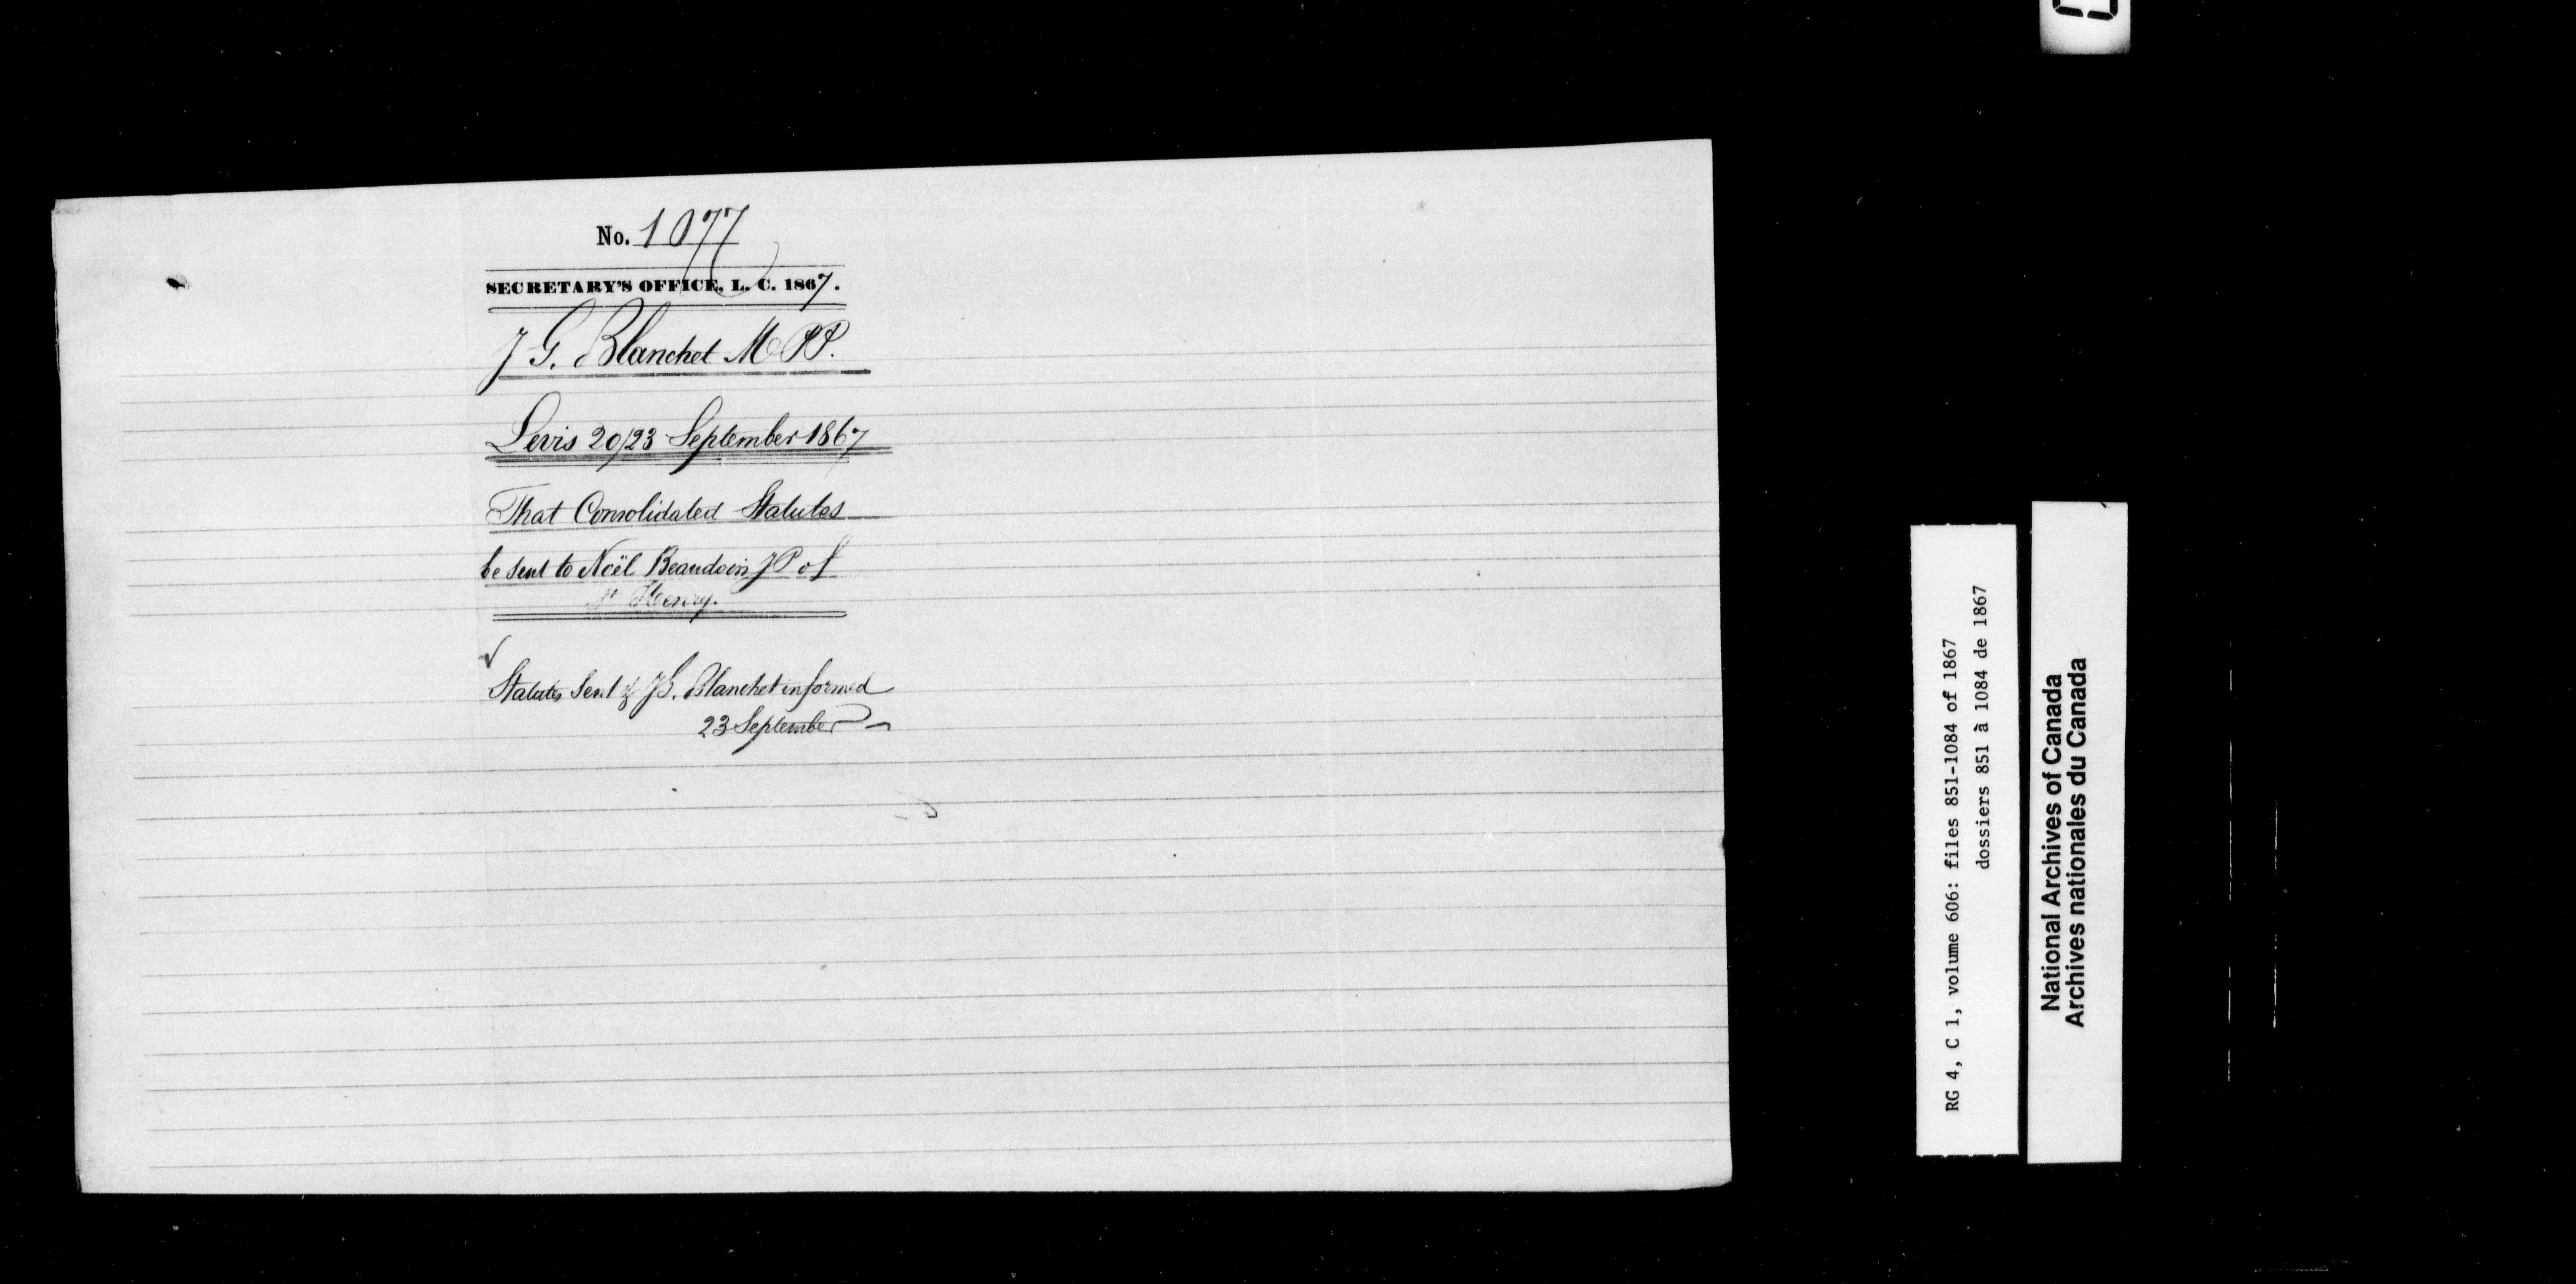 No. 1077
SECRETARY'S OFFICE, L. C. 1867.
J G. Blanchet M PP.
Levis 20/23 September 1867
That Consolidated Statutes
be sent to Noël Beaudoin JP of
St Henry.
Statutes sent & JG. Blanchet informed
23 September
RG 4, C 1, volume 606: files 851-1084 of 1867
dossiers 851 à 1084 de 1867
National Archives of Canada
Archives nationales du Canada